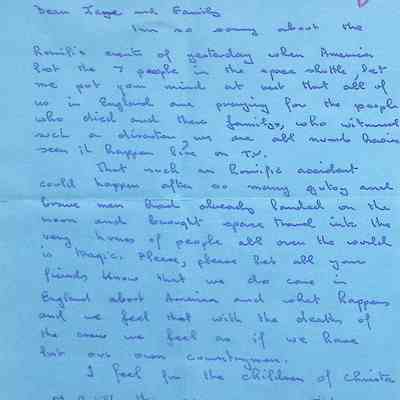 Dear Faye and Family
I'm so sorry about the
horrific events of yesterday when America
lost the 7 people in the space shuttle, let
me put your mind at rest that all of
us in England are praying for the people
who died and there familys, who witnessed
such a disaster we are all numb having
seen it happen live on T.V.
That such an horrific accident
could happen after so many gutsy and
brave men had already landed on the
moon and brought space travel into the
very homes of people all over the world
is tragic. Please, please let all your
friends know that we do care in
England about America and what happens
and we feel that with the deaths of
the crew we feel as if we have
lost our own countrymen.
I feel for the children of Christa